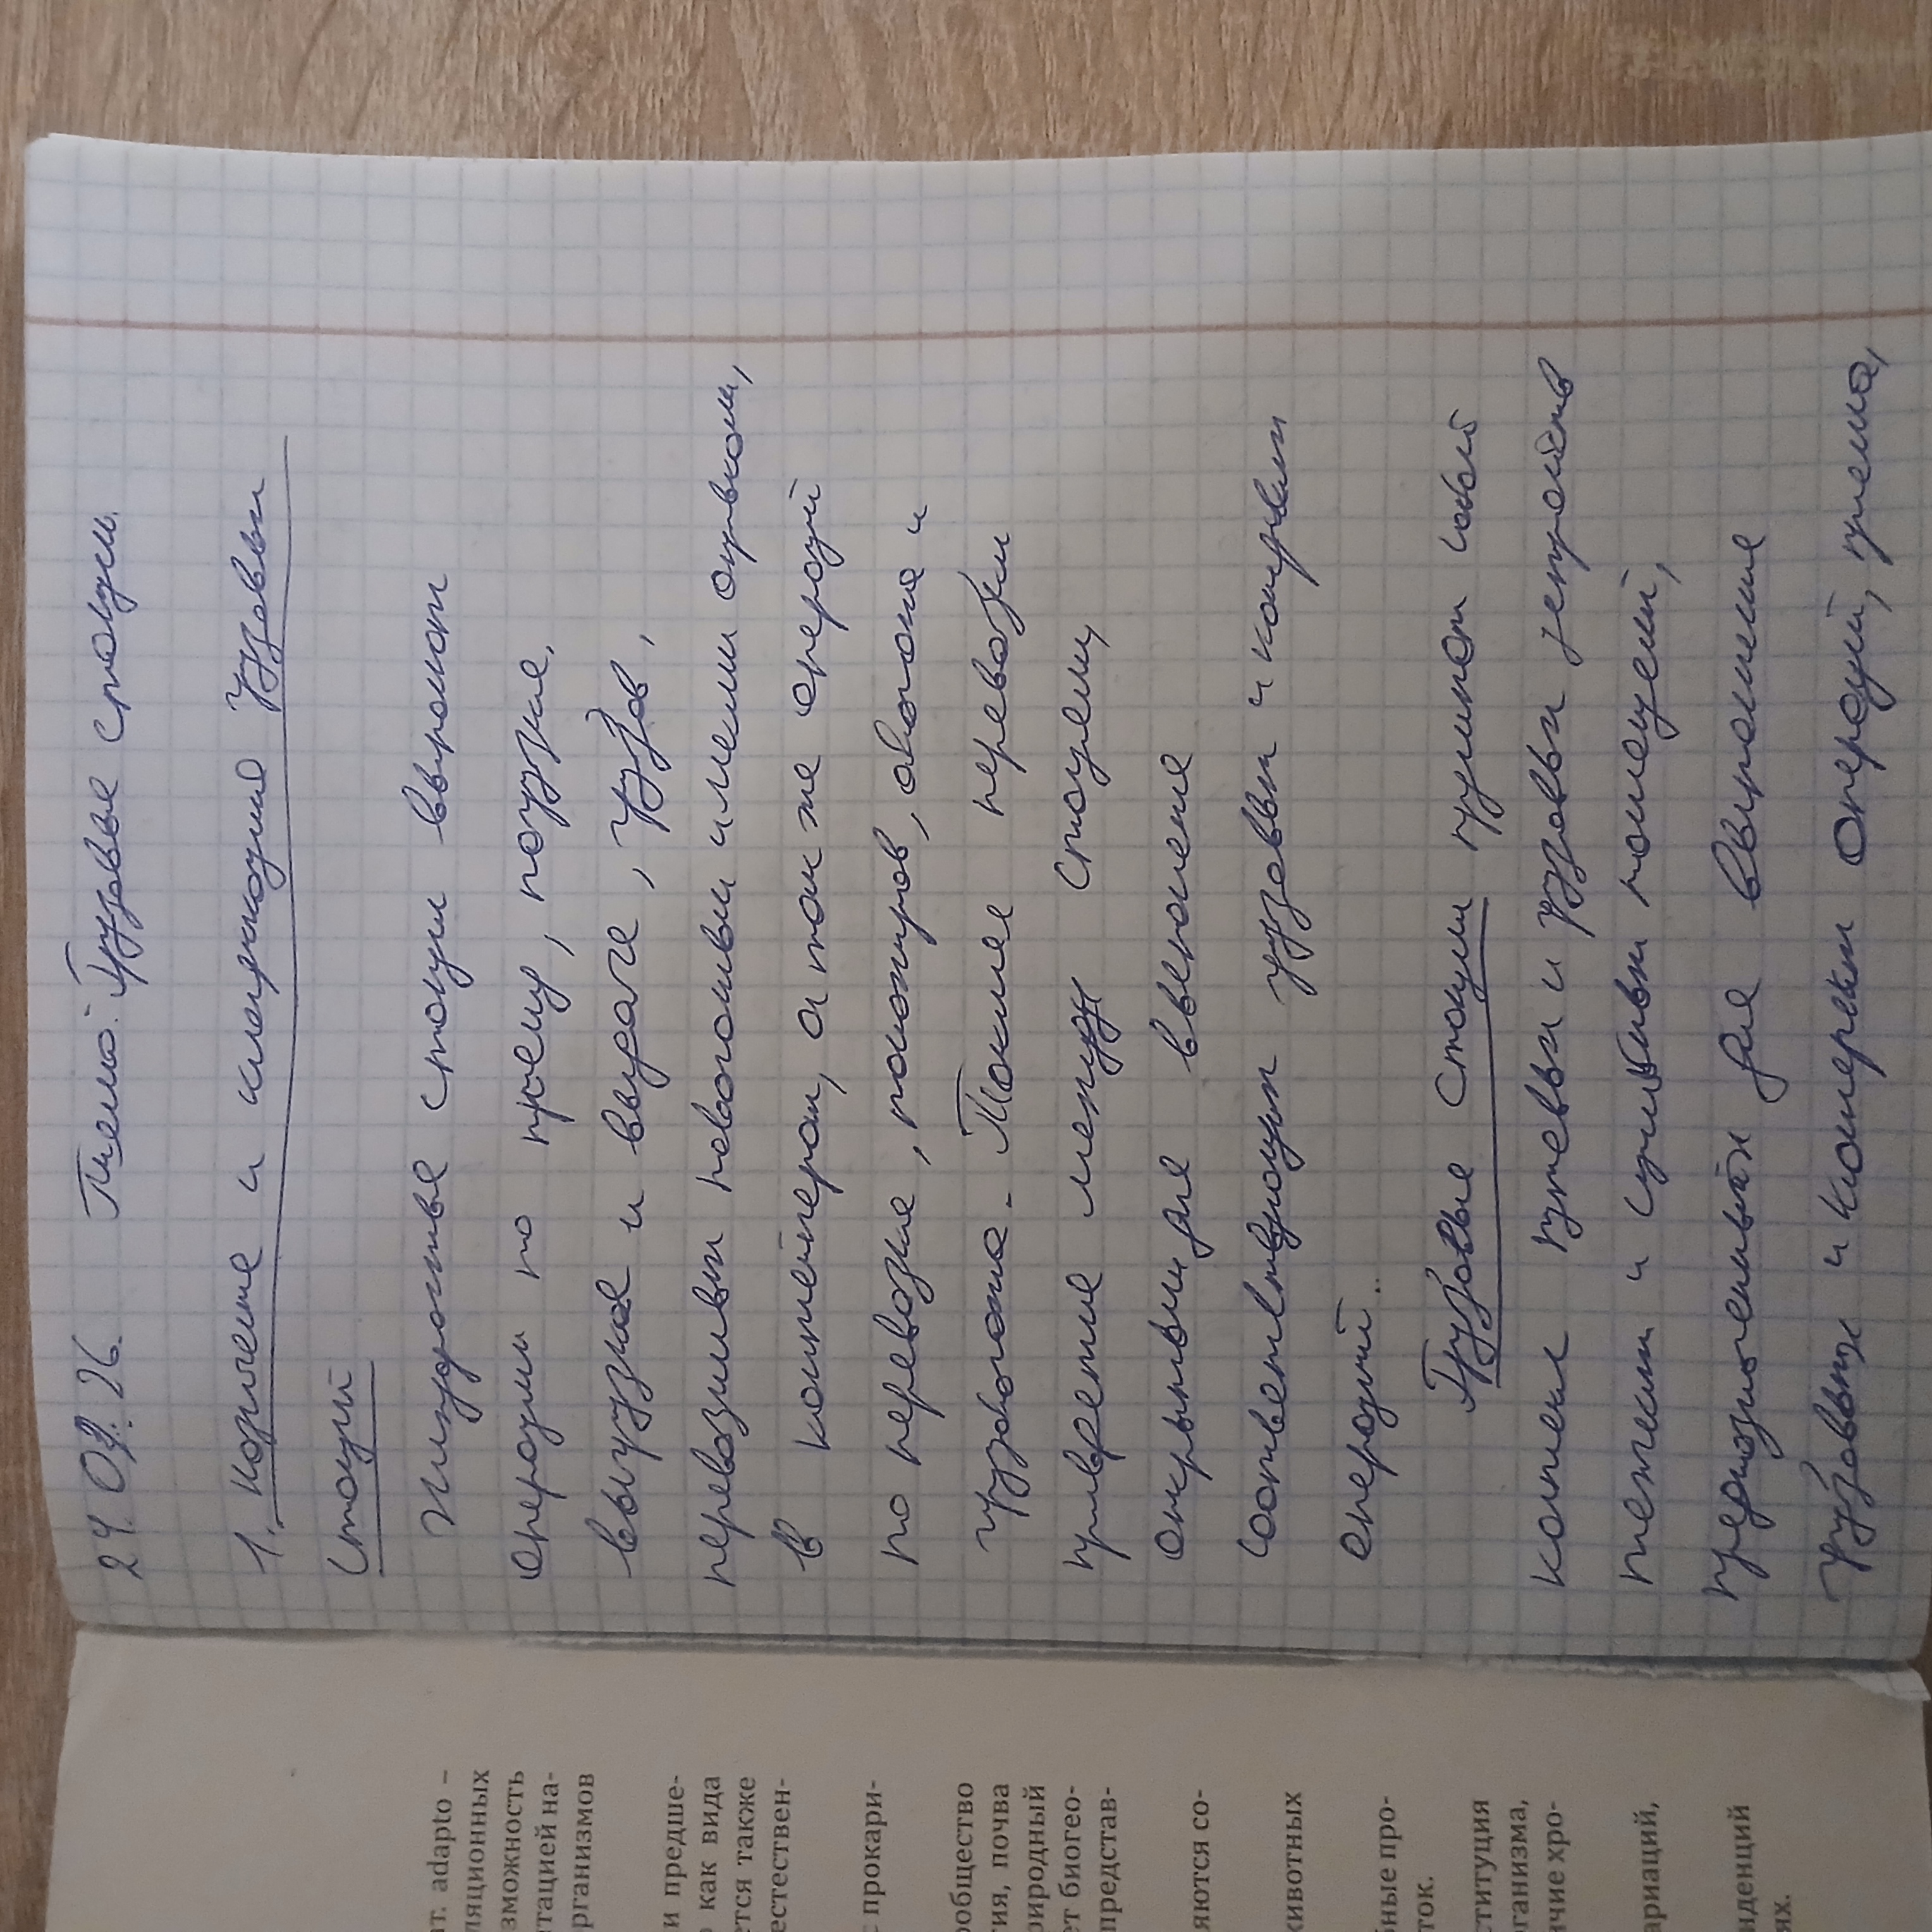 24.02.26. Тема: Грузовые станции.
1. Назначение и классификация грузовых
станций
Железнодорожные станции выполняют
операции по приему, погрузке,
выгрузке и выдаче, грузов,
перевозимых повагонными и мелкими отправками,
в контейнерах, а так же операций
по перевозке, пассажиров, багажа и
грузобагажа. Такие перевозки
между станциями,
открытыми для выполнения
соответствующих грузовых и коммерческих
операций.
Грузовые станции
комплекс путевых и грузовых устройств
технических и служебных помещений,
предназначенных для выполнения
грузовых и коммерческих операций, приема,
ат. adapto –
ляционных
зможность
тацией на-
рганизмов
и предше-
о как вида
ется также
естествен-
с прокари-
ообщество
тия, почва
риродный
ет биогео-
представ-
яются со-
животных
бные про-
ток.
ституция
рганизма,
ичие хро-
ариаций,
иденций
ях.